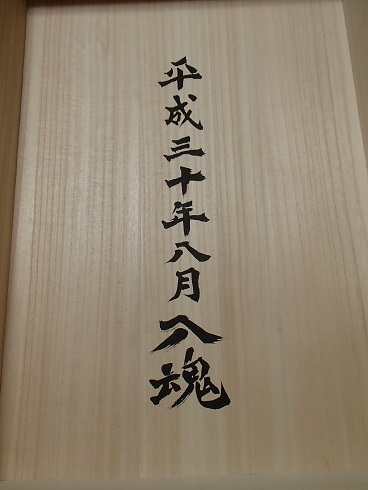 平成三十年八月入魂